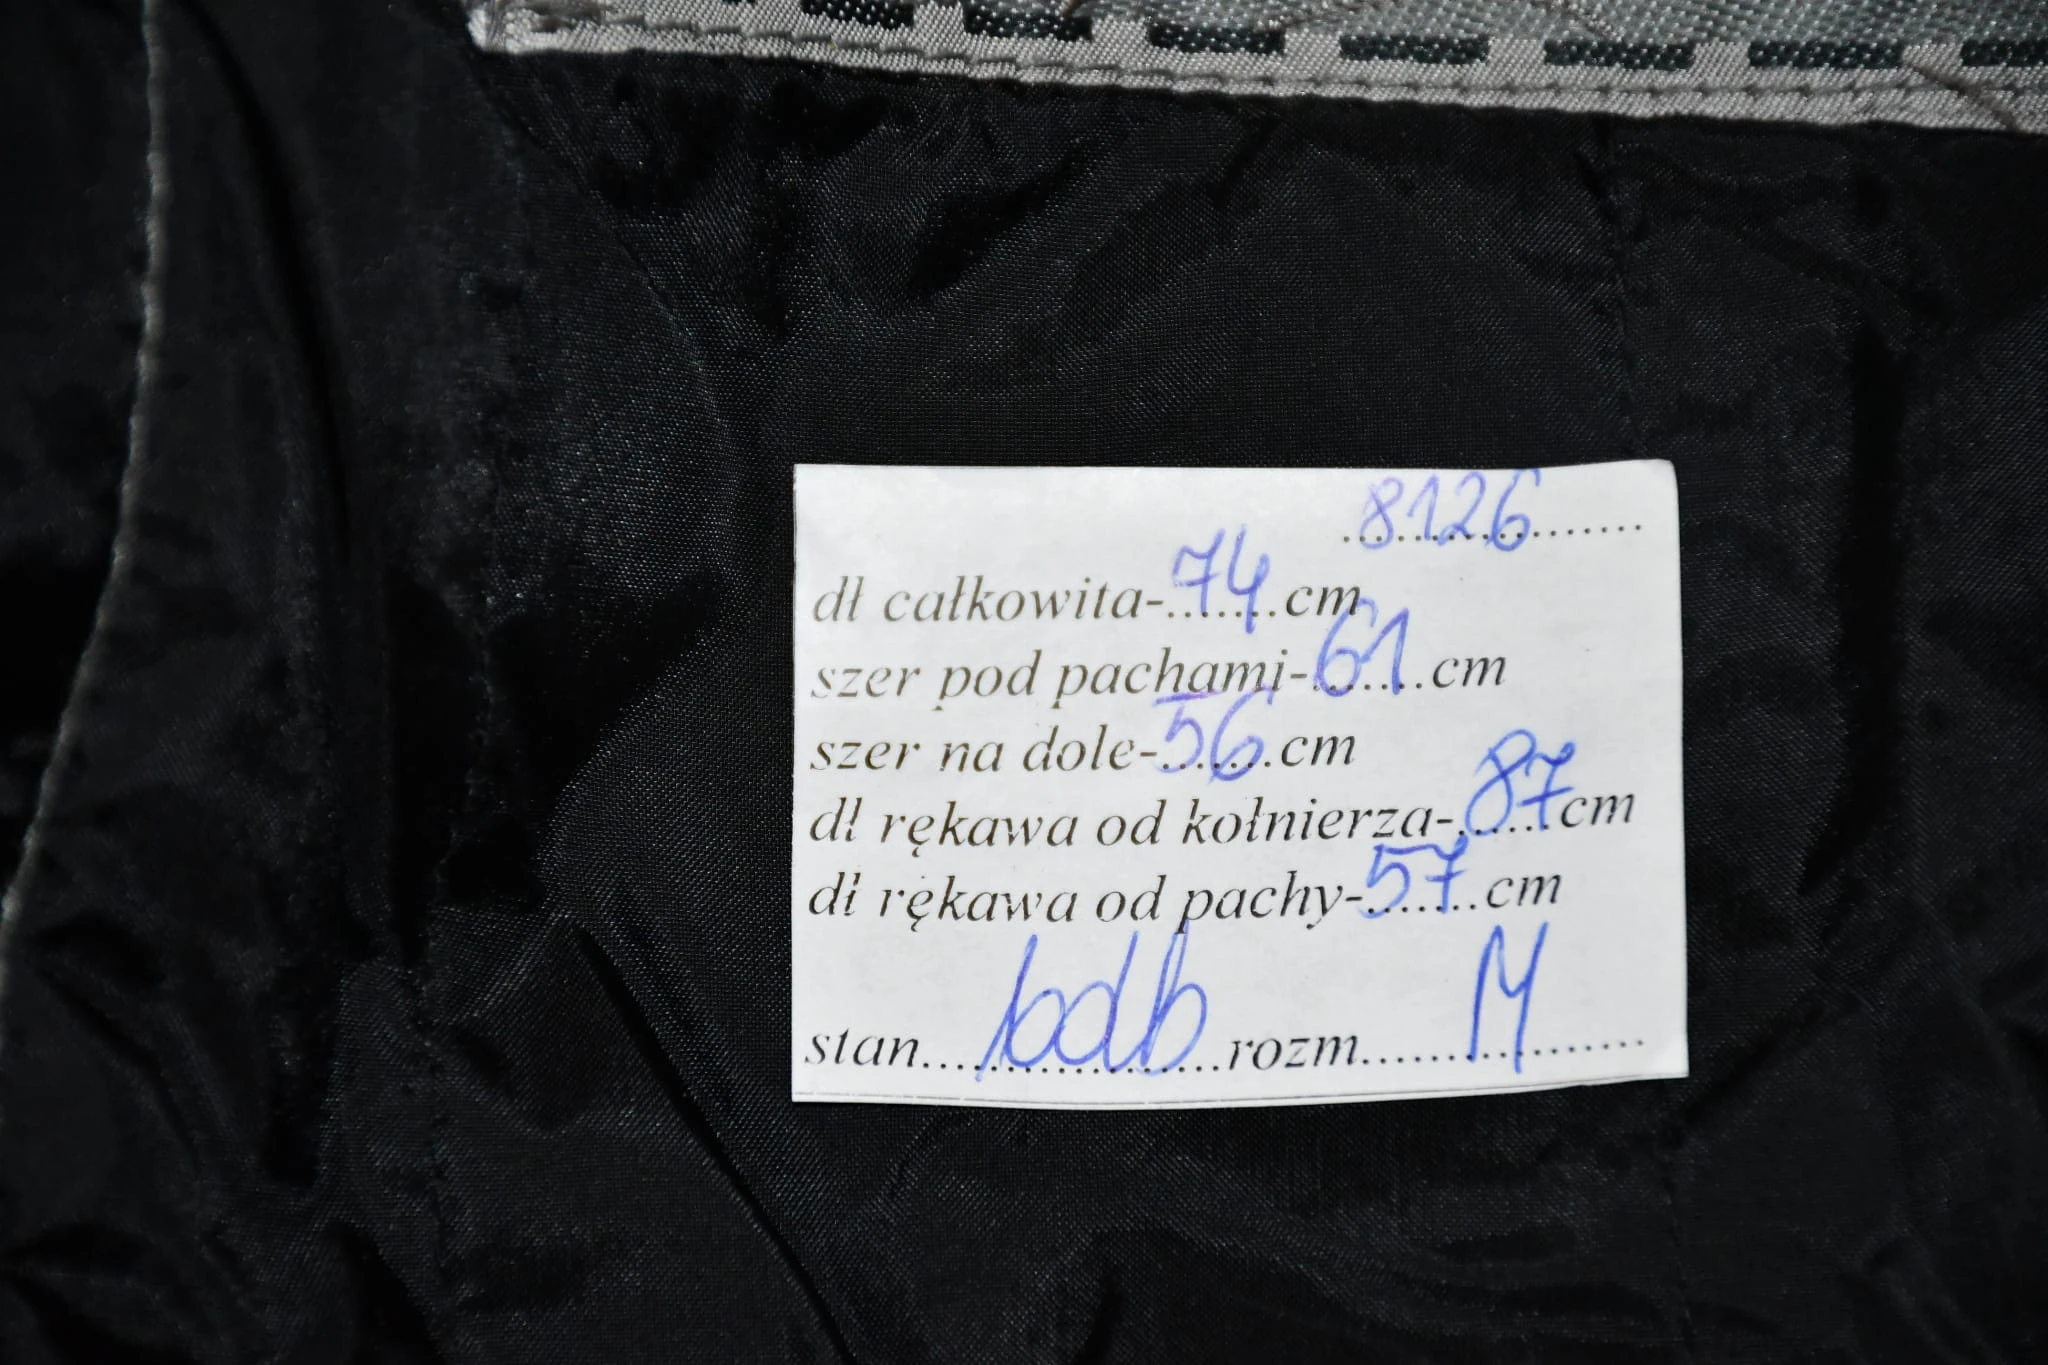 8126
dł całkowita-74cm
szer pod pachami-61cm
szer na dole-56cm
dł rękawa od kołnierza-87cm
dł rękawa od pachy-57cm
stan....bdb....rozm....M....